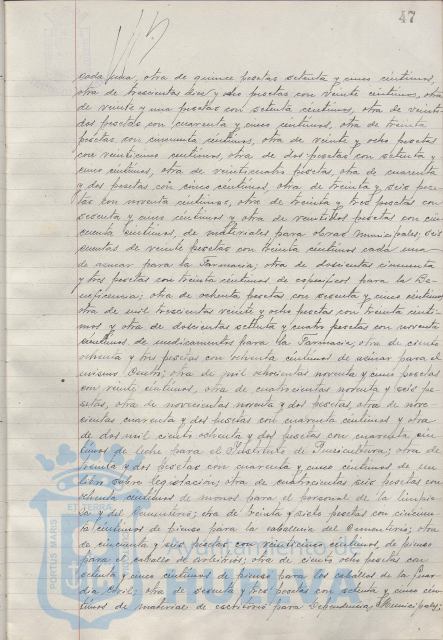 47
cada una, otra de quince pesetas setenta y cinco céntimos,
otra de trescientas doce y ocho pesetas con veinte céntimos, otra
de veinte y una pesetas con setenta céntimos, otra de veinte
dos pesetas con cuarenta y cinco céntimos, otra de treinta
pesetas con cincuenta céntimos, otra de veinte y ocho pesetas
con veinticinco céntimos, otra de dos pesetas con setenta y
cinco céntimos, otra de veinticuatro pesetas, otra de cuarenta
y dos pesetas con cinco céntimos, otra de treinta y seis pese-
tas con noventa céntimos, otra de treinta y tres pesetas con
sesenta y cinco céntimos y otra de veintidos pesetas con cin-
cuenta céntimos, de materiales para obras municipales; seis
cuentas de veinte pesetas con treinta céntimos cada una
de azucar para la Farmacia; otra de doscientas cincuenta
y tres pesetas con treinta céntimos de especificos para la Be-
neficencia; otra de ochenta pesetas con sesenta y cinco céntimos
otra de mil trescientas veinte y ocho pesetas con treinta cénti-
mos y otra de doscientas setenta y cuatro pesetas con noventa
céntimos de medicamentos para la Farmacia; otra de ciento
ochenta y tres pesetas con ochenta céntimos de azúcar para el
mismo Centro; otra de mil ochocientas noventa y cinco pesetas
con veinte céntimos, otra de cuatrocientas noventa y seis pe-
setas, otra de novecientas noventa y dos pesetas, otra de nove-
cientas cuarenta y dos pesetas con cuarenta céntimos y otra
de dos mil ciento ochenta y dos pesetas con cuarenta cén-
timos de leche para el Instituto de Puericultura; otra de
treinta y dos pesetas con cuarenta y cinco céntimos de un
libro sobre legislación; otra de cuatrocientas seis pesetas con
ochenta céntimos de monos para el personal de la limpie-
za y del Cementerio; otra de veinte y siete pesetas con cincuen-
ta céntimos de pienso para la caballeria del Cementerio; otra
de cincuenta y seis pesetas con veinticinco céntimos de pienso
para el caballo de arbitrios; otra de ciento ocho pesetas con
setenta y cinco céntimos de pienso para los caballos de la Guar-
dia Civil; otra de sesenta y tres pesetas con setenta y cinco cén-
timos de material de escritorio para Dependencias Municipales;
Ayuntamiento de
HUELVA
PORTUS MARIS
ET TERRÆ